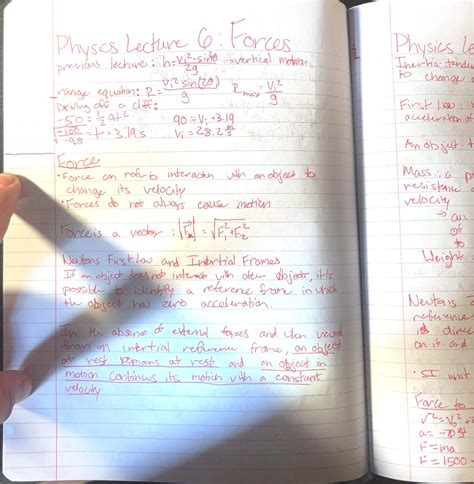 Physics Lecture 6: Forces
previous lecture: h = Vi² sinθ / 2g vertical motion
range equation: R = Vi² sin(2θ) / g Rmax = Vi² / g
Driving off a cliff:
-50 = ½at² 90 = Vi · 3.19
√(-100/-9.8) = t = 3.19s Vi = 28.2 m/s
Force
• Force can refer to interaction with an object to
change its velocity
• Forces do not always cause motion
Force is a vector: = √F₁² + F₂²
Newtons First Law and Inertial Frames
If an object does not interact with other objects, it is
possible to identify a reference frame in which
the object has zero acceleration.
In the absence of external forces and when viewed
from an inertial reference frame, an object
at rest remains at rest and an object in
motion continues its motion with a constant
velocity
Physics Le
Inertia: tenden
to change
First law:
acceleration of
An object
Mass: a p
resistance
velocity
of
to
Weight
Newtons
reference
is direc
on it and
• SI unit
Force to
a =
F = ma
F = 1500